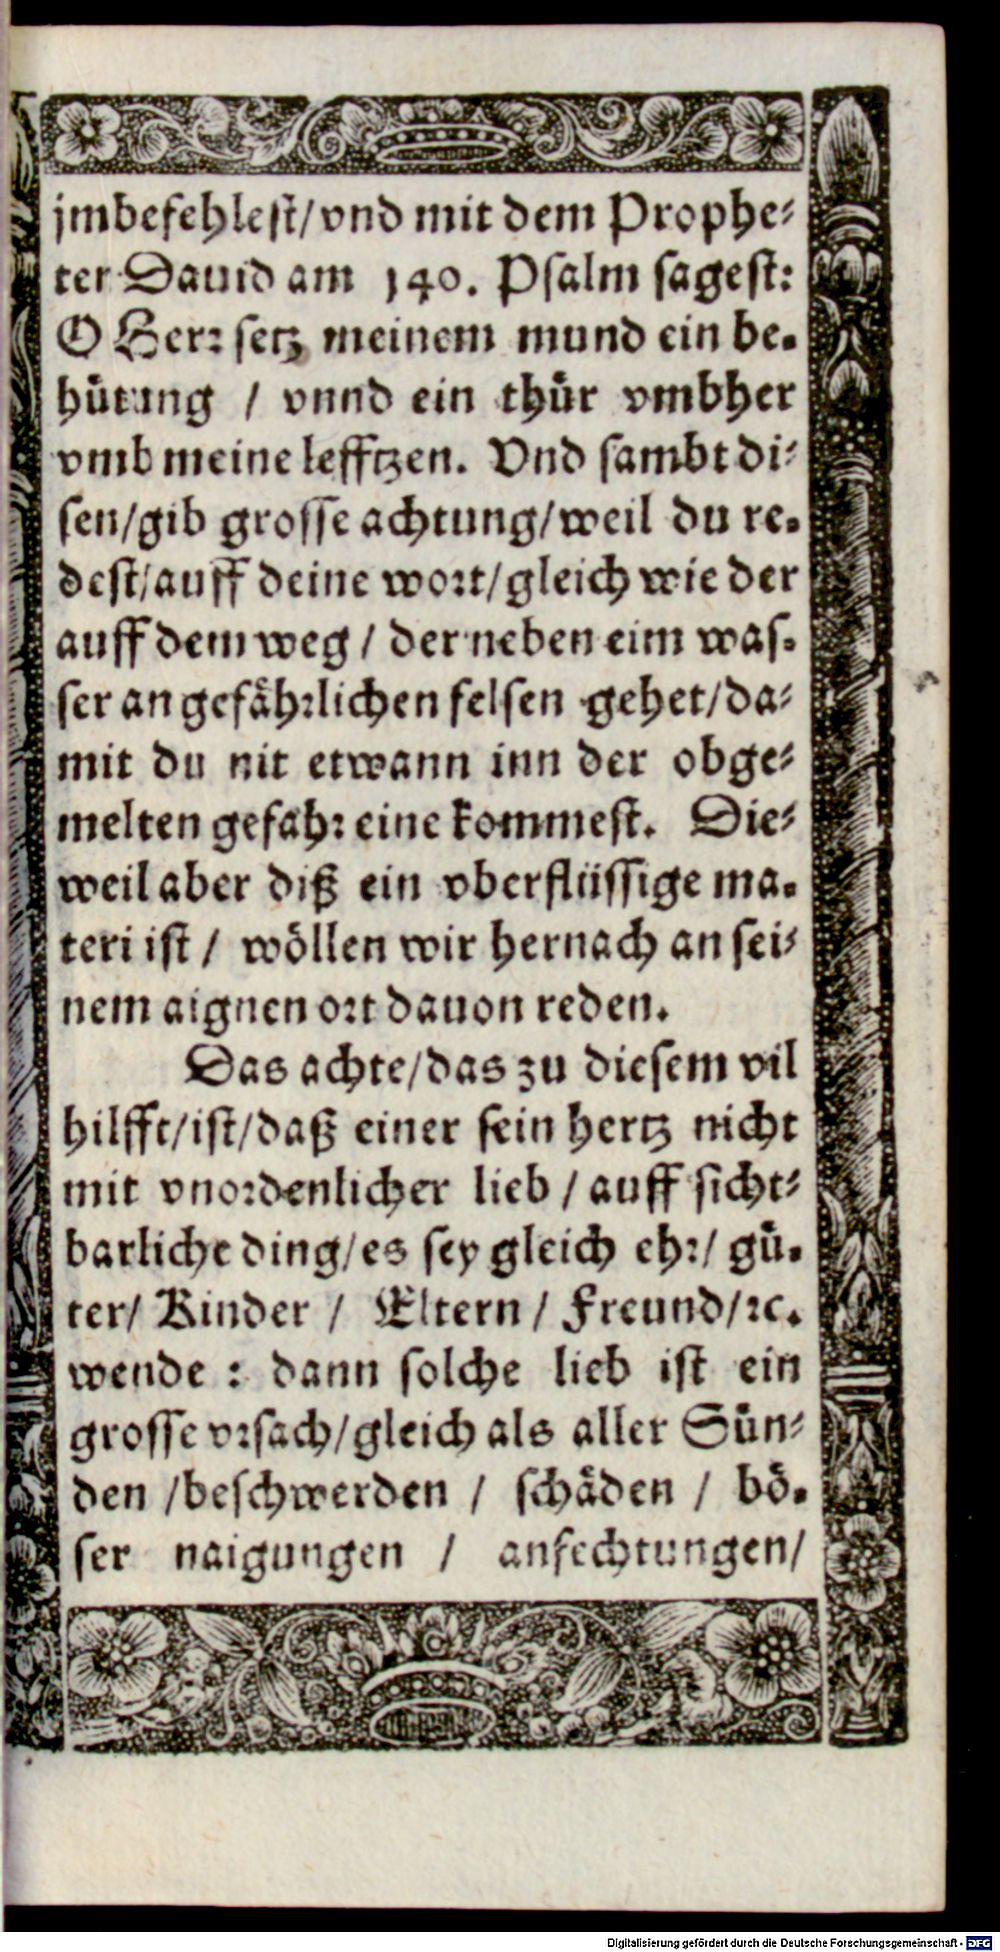 jmbefehlest/vnd mit dem Prophe⸗
ter Dauid am 140. Psalm sagest:
O Herꝛ setz meinem mund ein be⸗
huͤtung / vnnd ein thuͤr vmbher
vmb meine lefftzen. Vnd sambt di⸗
sen/gib grosse achtung/weil du re⸗
dest/auff deine woꝛt/gleich wie der
auff dem weg / der neben eim was⸗
ser an gefaͤhꝛlichen felsen gehet/da⸗
mit du nit etwann inn der obge⸗
melten gefahꝛ eine kommest. Die⸗
weil aber diß ein vberflüssige ma⸗
teri ist / woͤllen wir hernach an sei⸗
nem aignen oꝛt dauon reden.
Das achte/das zu diesem vil
hilfft/ist/daß einer sein hertz nicht
mit vnoꝛdenlicher lieb / auff sicht⸗
barliche ding/es sey gleich ehꝛ/ guͤ⸗
ter/ Kinder / Eltern / Freund/ꝛc.
wende : dann solche lieb ist ein
grosse vꝛsach/gleich als aller Suͤn⸗
den /beschwerden / schaͤden / boͤ⸗
ser naigungen / anfechtungen/
Digitalisierung gefördert durch die Deutsche Forschungsgemeinschaft - DFG